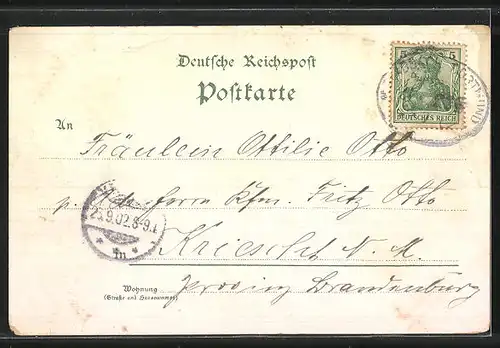 Deutsche Reichspost
Postkarte
5 5
DEUTSCHES REICH
An
Fräulein Ottilie Otto
p. Adr. Herrn Kfm. Fritz Otto
25.9.02.8-9.V.
Kriescht N. M.
Provinz Brandenburg
Wohnung
(Straße und Hausnummer)